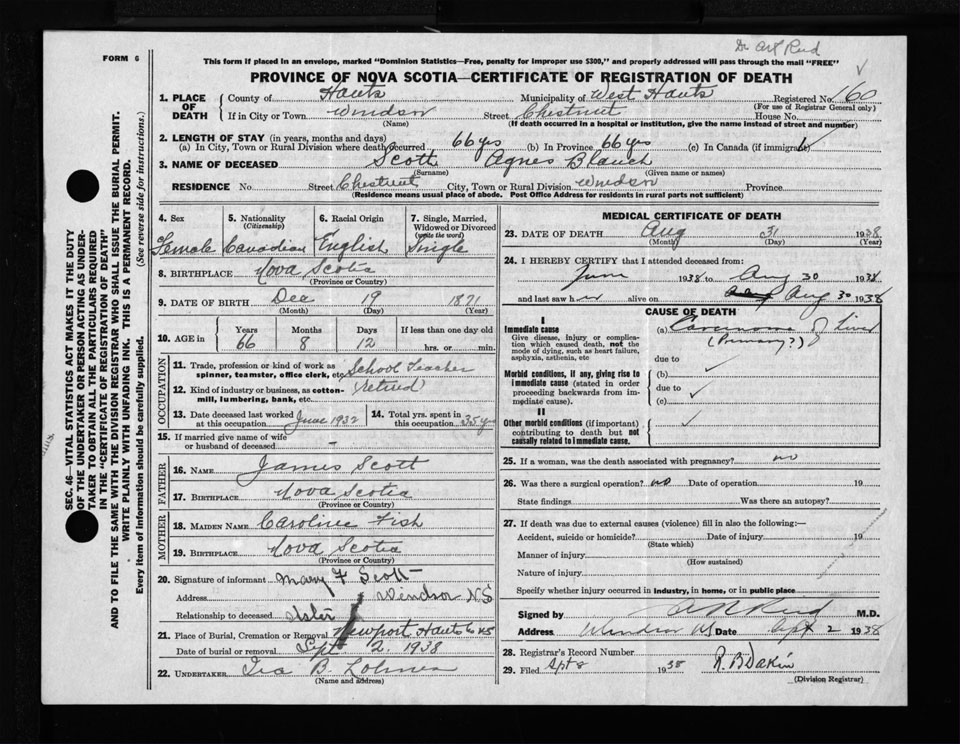 Dr Art Reid
FORM 6
This form if placed in an envelope, marked "Dominion Statistics—Free, penalty for improper use $300," and properly addressed will pass through the mail "FREE"
PROVINCE OF NOVA SCOTIA—CERTIFICATE OF REGISTRATION OF DEATH
1. PLACE OF DEATH
County of Hants Municipality of West Hants Registered No. 160
(For use of Registrar General only)
If in City or Town Windsor Street Chestnut House No.
(Name) (If death occurred in a hospital or institution, give the name instead of street and number)
2. LENGTH OF STAY (in years, months and days)
(a) In City, Town or Rural Division where death occurred 66 yrs (b) In Province 66 yrs (c) In Canada (if immigrant)
3. NAME OF DECEASED Scott Agnes Blanch
(Surname) (Given name or names)
RESIDENCE No. Street Chestnut City, Town or Rural Division Windsor Province
(Residence means usual place of abode. Post Office Address for residents in rural parts not sufficient)
4. Sex Female
5. Nationality (Citizenship) Canadian
6. Racial Origin English
7. Single, Married, Widowed or Divorced (write the word) Single
8. BIRTHPLACE Nova Scotia
(Province or Country)
9. DATE OF BIRTH Dec 19 1871
(Month) (Day) (Year)
10. AGE in Years Months Days If less than one day old
66 8 12 hrs. or min.
OCCUPATION
11. Trade, profession or kind of work as spinner, teamster, office clerk, etc. School Teacher
12. Kind of industry or business, as cotton-mill, lumbering, bank, etc. (retired)
13. Date deceased last worked at this occupation June 1932
14. Total yrs. spent in this occupation 35 yrs
15. If married give name of wife or husband of deceased -
FATHER
16. NAME James Scott
17. BIRTHPLACE Nova Scotia
(Province or Country)
MOTHER
18. MAIDEN NAME Caroline Fish
19. BIRTHPLACE Nova Scotia
(Province or Country)
20. Signature of informant Mary F Scott
Address Windsor NS
Relationship to deceased sister
21. Place of Burial, Cremation or Removal Newport Hants Co NS
Date of burial or removal Sept 2. 1938
22. UNDERTAKER Ira B.
(Name and address)
MEDICAL CERTIFICATE OF DEATH
23. DATE OF DEATH Aug 31 1938
(Month) (Day) (Year)
24. I HEREBY CERTIFY that I attended deceased from:
June 1938 to Aug 30 1938
and last saw her alive on Aug 30 1938
CAUSE OF DEATH
I
Immediate cause
Give disease, injury or complication which caused death, not the mode of dying, such as heart failure, asphyxia, asthenia, etc
(a) Carcinoma of Liver
(Primary?)
due to
Morbid conditions, if any, giving rise to immediate cause (stated in order proceeding backwards from immediate cause).
(b)
due to
(c)
II
Other morbid conditions (if important) contributing to death but not causally related to immediate cause.
25. If a woman, was the death associated with pregnancy? no
26. Was there a surgical operation? no Date of operation 19
State findings Was there an autopsy?
27. If death was due to external causes (violence) fill in also the following:—
Accident, suicide or homicide? Date of injury 19
(State which)
Manner of injury
(How sustained)
Nature of injury
Specify whether injury occurred in industry, in home, or in public place
Signed by Reid M.D.
Address Windsor NS Date Sept 2 1938
28. Registrar's Record Number
29. Filed Sept 8 1938 R. B Dakin
(Division Registrar)
SEC. 46—VITAL STATISTICS ACT MAKES IT THE DUTY
OF THE UNDERTAKER OR PERSON ACTING AS UNDER-
TAKER TO OBTAIN ALL THE PARTICULARS REQUIRED
IN THE "CERTIFICATE OF REGISTRATION OF DEATH"
AND TO FILE THE SAME WITH THE DIVISION REGISTRAR WHO SHALL ISSUE THE BURIAL PERMIT.
WRITE PLAINLY WITH UNFADING INK. THIS IS A PERMANENT RECORD.
Every item of information should be carefully supplied. (See reverse side for instructions.)